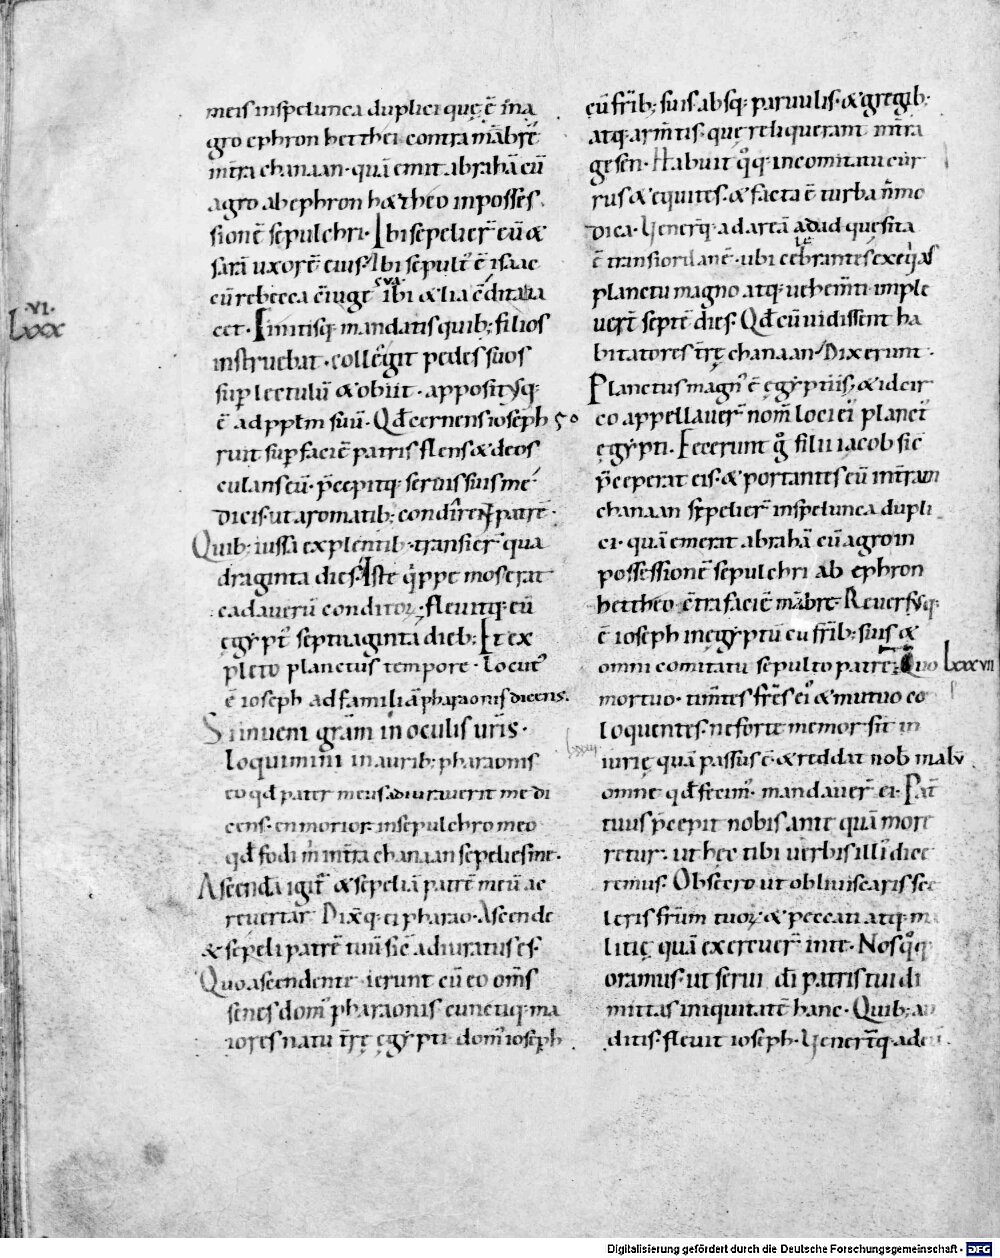 meis inspelunca duplici quę ē ina
gro ephron hetthei contra mābrē
int̄ra chanaan · quā emit abrahā cū
agro abephron hetheo inposses
sionē sepulchri · Ibi sepelier̄ eū &
sarā uxorē eius · Ibi sepult᷒ ē isaac
cū rebecca ēiuge sua ibi & lia ēdita ia
cet · Finitisq; mandatis quib; filios
instruebat · collegit pedes suos
suꝑ lectulū & obiit · appositusq;
ē ad pplm̄ suū · Qd̄ cernens ioseph
ruit suꝑ faciē patris flens & deos
culans eū · p̄cepitq; seruis suis me
dicis · ut aromatib; condirent patrē ·
Quib; iussa explentib; transier̄ qua
draginta dies · Iste q̇ppe mos erat
cadauerū conditoꝝ · fleuitq; eū
ęgypt᷒ septuaginta dieb; Et ex
pleto planctus tempore · locut᷒
ē ioseph ad familiā pharaonis dicens ·
Si inueni grām in oculis ur̄is ·
loquimini in aurib; pharaonis
eo qd̄ pater meus adiurauerit me di
cens · en morior · insepulchro meo
qd̄ fodi m̄ int̄ra chanaan sepelies me ·
Ascendā igit᷒ & sepeliā patrē meū ac
reuertar · Dixitq; ei pharao · Ascende
& sepeli patrē tuū sic adiuratus es ·
Quo ascendente · ierunt cū eo om̄s
senes dom᷒ pharaonis cunctiq; ma
iores natu t̄rę ęgypti · dom᷒ ioseph
cū fr̄ib; suis · absq; paruulis · & gregib;
atq; arm̄tis · quę reliquerant int̄ra
gesen · Habuit q̊q; incomitatu cur
rus & equites · & facta ē turba n̄ mo
dica · Uener̄q; ad areā adad que sita
ē trans iordanē · ubi celebrantes exeq̇as
planctu magno atq; uehem̄ti · imple
uer̄t septē dies · Qd̄ cū uidissent ha
bitatores t̄rę chanaan · Dixerunt ·
Planctus magn᷒ ē ęgyptiis · & idcir
co appellauer̄ nom̄ loci ei᷒ planct᷒
ęgypti · Fecerunt g̊ filii iacob sic
p̄ceperat eis · & portantes eū int̄ram
chanaan sepelier̄ inspelunca dupli
ci · quā emerat abrahā cū agro in
possessionē sepulchri ab ephron
hettheo ēt̄ra faciē mābre · Reuersusq;
ē ioseph in ęgyptū cū fr̄ib; suis &
omni comitatu sepulto patre · Quo
mortuo · tim̄tes fr̄es ei᷒ & mutuo co
loquentes · ne forte memor sit in
iurię quā passus ē · & reddat nob̄ malū
omne qd̄ fecim᷒ · mandauer̄ ei · Pat̄
tuus p̄cepit nobis ante quā more
retur · ut hęc tibi uerbis illi᷒ dice
remus · Obsecro ut obliuiscaris sce
leris fr̄um tuoꝝ & peccati atq; ma
litię quā exercuer̄ inte · Nos q̊q;
oramus · ut serui dī patris tui di
mittas iniquitatē hanc · Quib; au
ditis · fleuit ioseph · Uener̄tq; ad eū
VI.
Lxxx
50
lxxxvii